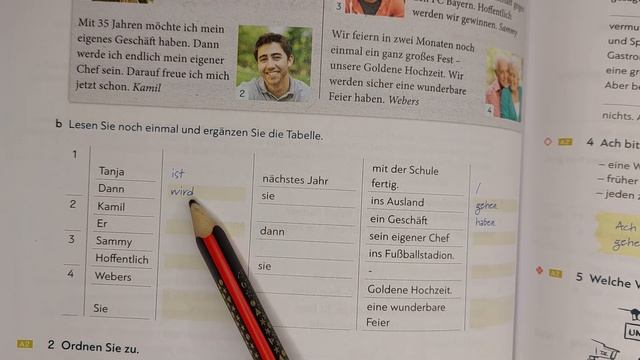 Mit 35 Jahren möchte ich mein
eigenes Geschäft haben. Dann
werde ich endlich mein eigener
Chef sein. Darauf freue ich mich
jetzt schon. Kamil
2
3
FC Bayern. Hoffentlich
werden wir gewinnen. Sammy
Wir feiern in zwei Monaten noch
einmal ein ganz großes Fest –
unsere Goldene Hochzeit. Wir
werden sicher eine wunderbare
Feier haben. Webers
4
b Lesen Sie noch einmal und ergänzen Sie die Tabelle.
1 Tanja ist nächstes Jahr mit der Schule fertig. /
Dann wird sie ins Ausland gehen
2 Kamil ein Geschäft haben
Er dann sein eigener Chef
3 Sammy ins Fußballstadion.
Hoffentlich sie -
4 Webers Goldene Hochzeit.
Sie eine wunderbare Feier
A2 2 Ordnen Sie zu.
vermu
und Sp
Gastro
eine gr
Aber be
nichts. A
A2 4 Ach bit
– eine W
– früher
– jeden
Ach
gehe
A2 5 Welche V
UN